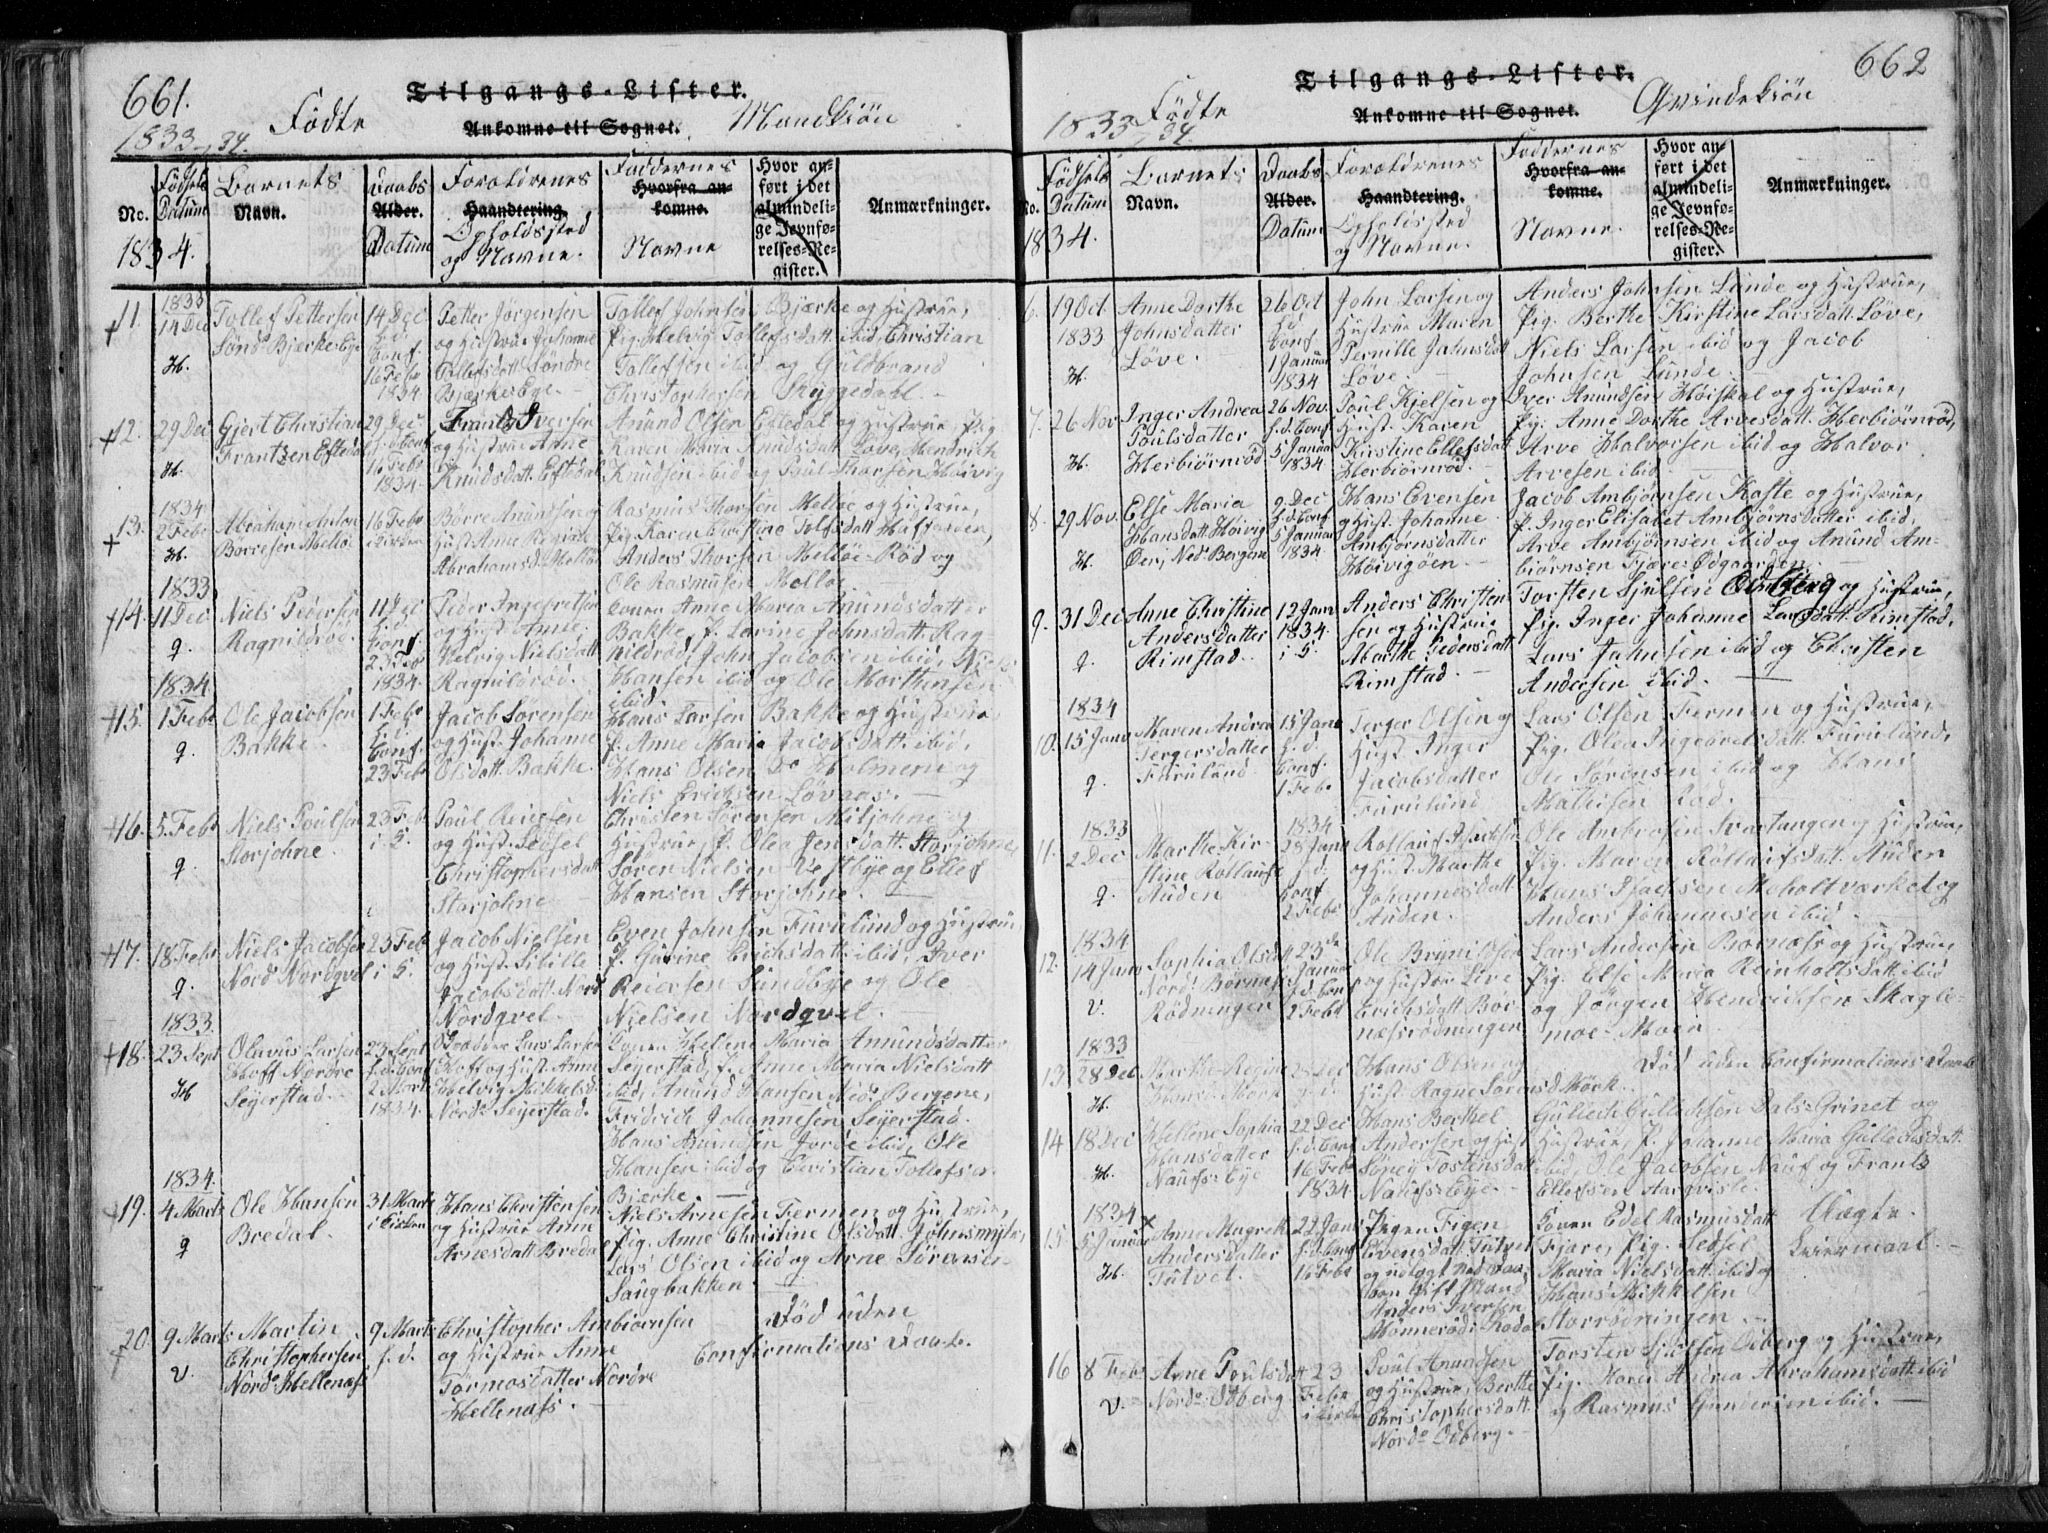 661.
Tilgangs-Lister.
1833-34.
Födte
Ankomne til Sognet.
Mandkiön
No.
Födsels Datum
Barnets
Navn.
Daabs
Alder.
Datum
Forældrenes
Haandtering.
Opholdssted
og Navne.
Faddernes
Hvorfra ankomne.
Navne
Hvor anført i det almindelige Jevnførelses-Register.
Anmærkninger.
1834.
11.
1833
14 Dec
H.
Tollef Pettersen
Sönd Bjerke Eye
14 Dec
h.d.
Conf.
16 Febr
1834
Petter Jörgensen
og Hustrue Johanne
Tollefsdatt. Söndre
Bjærke Eye
Tollef Johnsen Bjerke og Hustrue,
Pig. Helvig Tollefsdatt. ibid, Christian
Tollefsen ibid og Guldbrand
Christophersen Skyggedahl.
12.
29 Dec
H.
Gjert Christian
Frantzen Eftedal
29 Dec
h.d. Conf
16 Febr
1834
Frants Iversen
og Hustrue Anne
Knudsdatt. Eftedal
Anund Olsen Eftedal og Hustrue, Pig
Karen Maria Knudsdatt. Löve, Hendrich
Knudsen ibid og Poul Thorsen Höivig
13.
1834
2 Febr
H.
Abraham Anton
Börresen Melløe
16 Febr
i Kirken
Börre Anundsen og
Hust. Anne
Abrahamsd. Melløe
Rasmus Thorsen Melløe og Hustrue,
Anders Thorsen Melløe-Röd og
Ole Rasmusen Melløe
14.
1833
11 Dec
q.
Niels Pedersen
Ragnildröd.
11 Dec
h.d.
Conf.
23 Feb
1834
Peder Ingebretsen
og Hust. Anne
Helvig Nielsdatt
Ragnildröd.
Konen Anne Maria Anundsdatter
Bakke, P. Larine Johnsdatt. Ragnildröd, John Jacobsen ibid, Niels
Hansen ibid og Ole Marthinsen
ibid
15.
1834
1 Febr
q.
Ole Jacobsen
Bakke
1 Febr
h.d.
Conf.
23 Febr
Jacob Sörensen
og Hust. Johanne
Olsdatt. Bakke.
Hans Larsen Bakke og Hustrue,
P. Anne Maria Jacobsdatt. ibid,
Hans Olsen Do Holmene og
Niels Erichsen Lövaas.
16.
5 Febr
q.
Niels Poulsen
Storjohne.
23 Feb
i K.
Poul Reiersen
og Hust. Sedsel
Christophersdatt
Storjohne
Christen Sörensen Miljohne og
Hustrue, P. Olea Jensdatt. Storjohne,
Sören Nielsen Vestbye og Ellef
Hansen Storjohne.
17.
18 Febr
q.
Niels Jacobsen
Nord Nordqvel
23 Feb
i K.
Jacob Nielsen
og Hust. Sibille
Jacobsdatt. Nord
Nordqvel
Even Johnsen Furulund og Hustrue,
P. Gurine Erichsdatt. ibid, Iver
Reiersen Sundbye og Ole
Nielsen Nordqvel.
18.
1833.
23 Sept
H
Olavus Larsen
Hoff Nordre
Seierstad.
23 Sept
h.d. Conf
2 Mart
1834.
Lars Larsen
Hoff og Hust. Anne
Helvig Mikkelsd.
Nord Seyerstad.
Konen Hellene Maria Amundsdatter
Seyerstad, P. Anne Maria Nielsdatt
ibid, Anund Hansen Ned. Bergene,
Fridrich Johannesen Seyerstad.
Hans Anundsen Jorde ibid, Ole
Hansen ibid og Christian Tollefsen
Bjerke.
19.
1834.
4 Marts
q
Ole Hansen
Bredal.
31 Marts
i Kirken
Hans Christensen
og Hustrue Anne
Arnesdatt Bredal
Niels Arnesen Fermen og Hustrue,
Pig. Anne Christine Olsdatt. Johnsmyhr,
Lars Olsen ibid og Arne Sörensen
Saugbakken
20.
9 Marts
V
Martin
Christophersen
Nord. Hellenæs
9 Marts
h.d.
Christopher Ambiörnsen
og Hustrue Anne
Tormosdatter Nordre
Hellenæss.
Död uden
Confirmations Daab.
662
Tilgangs-Lister.
1833-34.
Födte
Ankomne til Sognet.
Qvindekiön
No.
Födsels
Datum
Barnets
Navn.
Daabs
Alder.
Datum
Forældrenes
Haandtering.
Opholdssted
og Navne.
Faddernes
Hvorfra ankomne.
Navne.
Hvor anført i det almindelige Jevnførelses-Register.
Anmærkninger.
1834.
6.
19 Oct
1833
H.
Anne Dorthe
Johnsdatter
Löve.
26 Oct
h.d.
Conf
1 Januar
1834
John Larsen og
Hustrue Maren
Pernille Jahnsdatt
Löve.
Anders Johnsen Lunde og Hustrue,
Pig. Berthe Kirstine Larsdatt. Löve,
Niels Larsen ibid og Jacob
Johnsen Lunde.
7.
26 Nov
H.
Inger Andrea
Poulsdatter
Herbiörnröd
26 Nov.
h.d. Conf
5 Januar
1834
Poul Kjelsen og
Hust. Karen
Kirstine Ellefsdatt
Herbiörnröd.
Iver Amundsen Höiskal og Hustrue,
Pig. Anne Dorthe Arvesdatt. Herbiörnröd,
Arve Halvorsen ibid og Halvor
Arvesen ibid.
8.
29 Nov.
H.
Else Maria
Hansdatt. Höivig
Öen, Ned Bergene
9 Dec
h.d. Conf
5 Januar
1834.
Hans Evensen
og Hust. Johanne
Ambjörnsdatter
Höivigöen
Jacob Ambjörnsen Kaste og Hustrue,
P. Inger Elisabet Ambjörnsdatter ibid,
Arve Ambjörnsen ibid og Anund Ambiörnsen Fjære Ödgaarden
9.
31 Dec
q.
Anne Christine
Andersdatter
Rimstad.
12 Janr
1834.
i K.
Anders Christensen og Hustrue
Marthe Pedersdatt
Rimstad.
Torsten Sjulsen Odberg og Hustrue,
Pig. Inger Johanne Larsdatt. Rimstad,
Lars Jahnsen ibid og Christen
Andersen ibid.
10.
1834
15 Janr
q.
Maren Andrea
Tergersdatter
Furulund.
15 Janr
h.d.
Conf.
1 Febr
Terger Olsen og
Hust. Inger
Jacobsdatter
Furulund
Lars Olsen Fermen og Hustrue,
Pig. Olea Ingebretsdatt. Furulund,
Ole Sörensen ibid og Hans
Mathisen Röd.
11.
1833
2 Dec
q.
Marthe Kirstine Rollaufs
Auden
1834
28 Janr
h.d.
Conf
2 Febr
Rollauf Isachsen
og Hust. Marthe
Johannesdatt
Auden.
Ole Ambrosen Svartangen og Hustrue,
Pig. Maren Rollaufsdatt. Auden
Hans Isachsen Moholtværket og
Anders Johannesen ibid
12.
1834
14 Janr
V.
Sophia Olsdatt
Nord. Bornæs
Rödningen
23de
Januar
h.d. Conf
2 Febr
Ole Brynilsen
og Hustrue Live
Erichsdatt Bornæsrödningen
Lars Andersen Bornæss og Hustrue
Pig. Else Maria Reinholtsdatt. ibid
og Jörgen Hendrichsen Skaglemoe-Moen.
13
1833
28 Dec
H.
Marthe Regine
Hansd. Mörk
28 Dec
Hans Olsen og
Hust. Ragne Sörensd. Mörk.
Död uden Confirmations Daab
14
18 Dec
H.
Hellene Sophia
Hansdatter
Naufs-Eye
22 Dec
h.d. Conf
16 Febr
1834
Hans Berthel
Andersen og Hust
Tostensdatt
Naufs-Eye
Gullech Gullechsen Dals-Grinet og
Hustrue, P. Johanne Maria Gullechsdatt.
ibid, Ole Jacobsen Nauf og Frants
Ellefsen Aarqvisle.
15
1834
5 Januar
H.
Anne Magrethe
Andersdatter
Tutvet.
22 Janr
h.d. Conf
16 Febr
Pigen Figen
Evensdatt Tutvet
og udlagt
Gift Mand
Anders Iversen
Mönneröd
Konen Edel Rasmusdatt
Fjære, Pig. Sedsel
Maria Nielsdatt ibid og
Hans Mikkelsen
Storrödningen
Uægte.
Leiermaal.
16
8 Febr
V.
Anne Poulsdatt
Nord. Odberg
23
Febr
i Kirken
Poul Anundsen
og Hustrue, Berthe
Christophersdatt.
Nord. Odberg.
Torsten Sjulsen Odberg og Hustrue,
Pig. Maren Andrea Abrahamsdatt. ibid
og Rasmus Gundersen ibid.